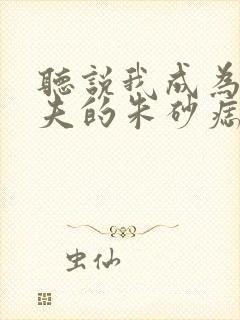 聽說我成為
夫的朱砂痣
虫仙